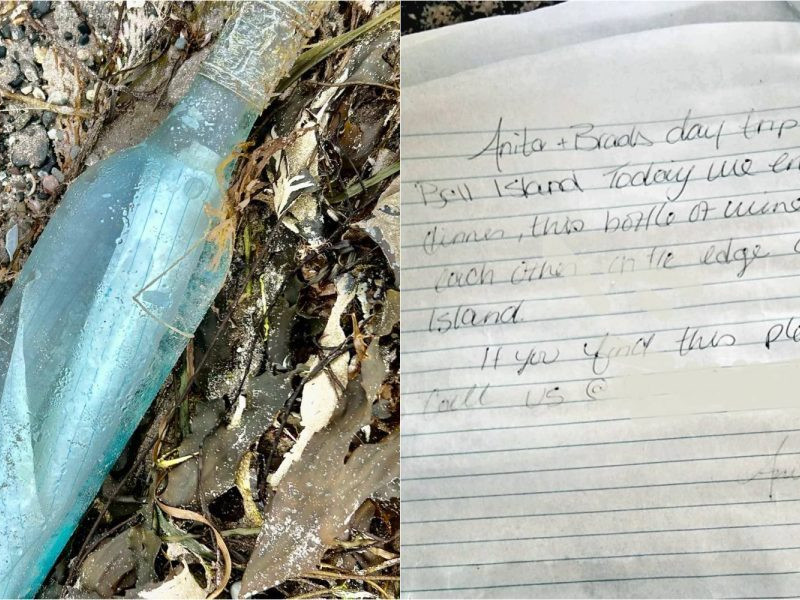 Anita + Brads day trip
Bell Island Today we en
dinner, this bottle of wine
each other on the edge
Island.
If you find this ple
Call us @